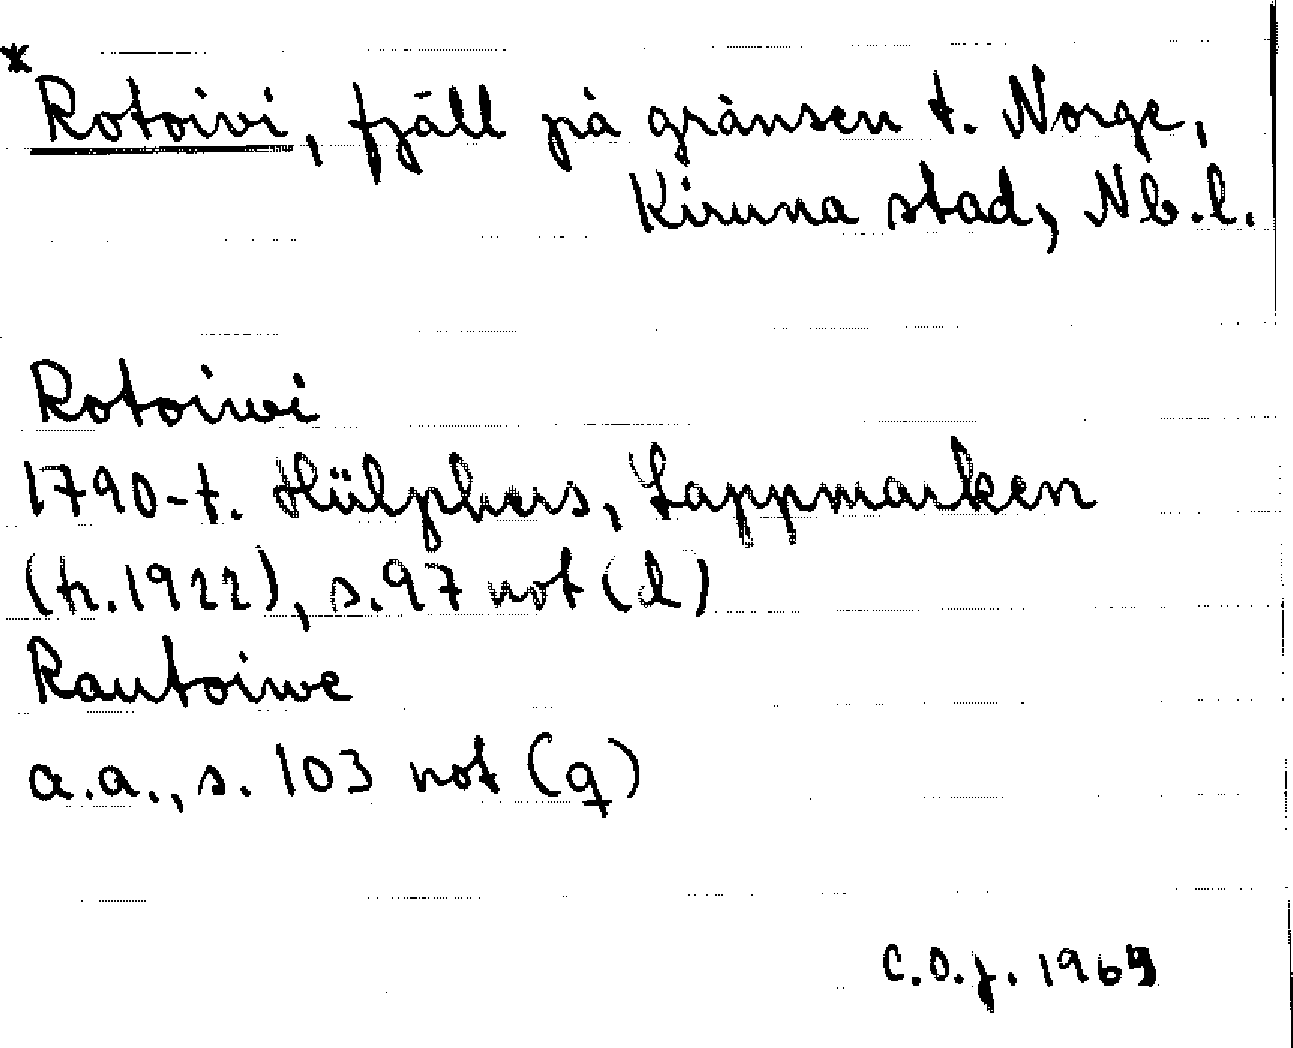 * Rotoivi, fjäll på gränsen t. Norge,
Kiruna stad, Nb.l.
Rotoiwi
1790-t. Hülphers, Lappmarken
(tr. 1922), s. 97 not (d)
Rautoiwe
a.a., s. 103 not (q)
C.O.J. 1969